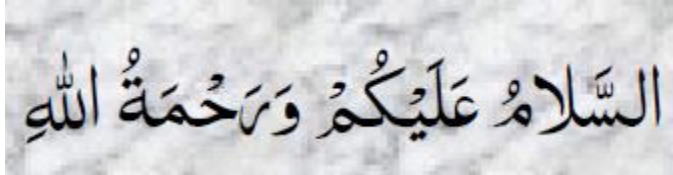 السَّلامُ عَلَيْكُمْ وَرَحْمَةُ اللهِ